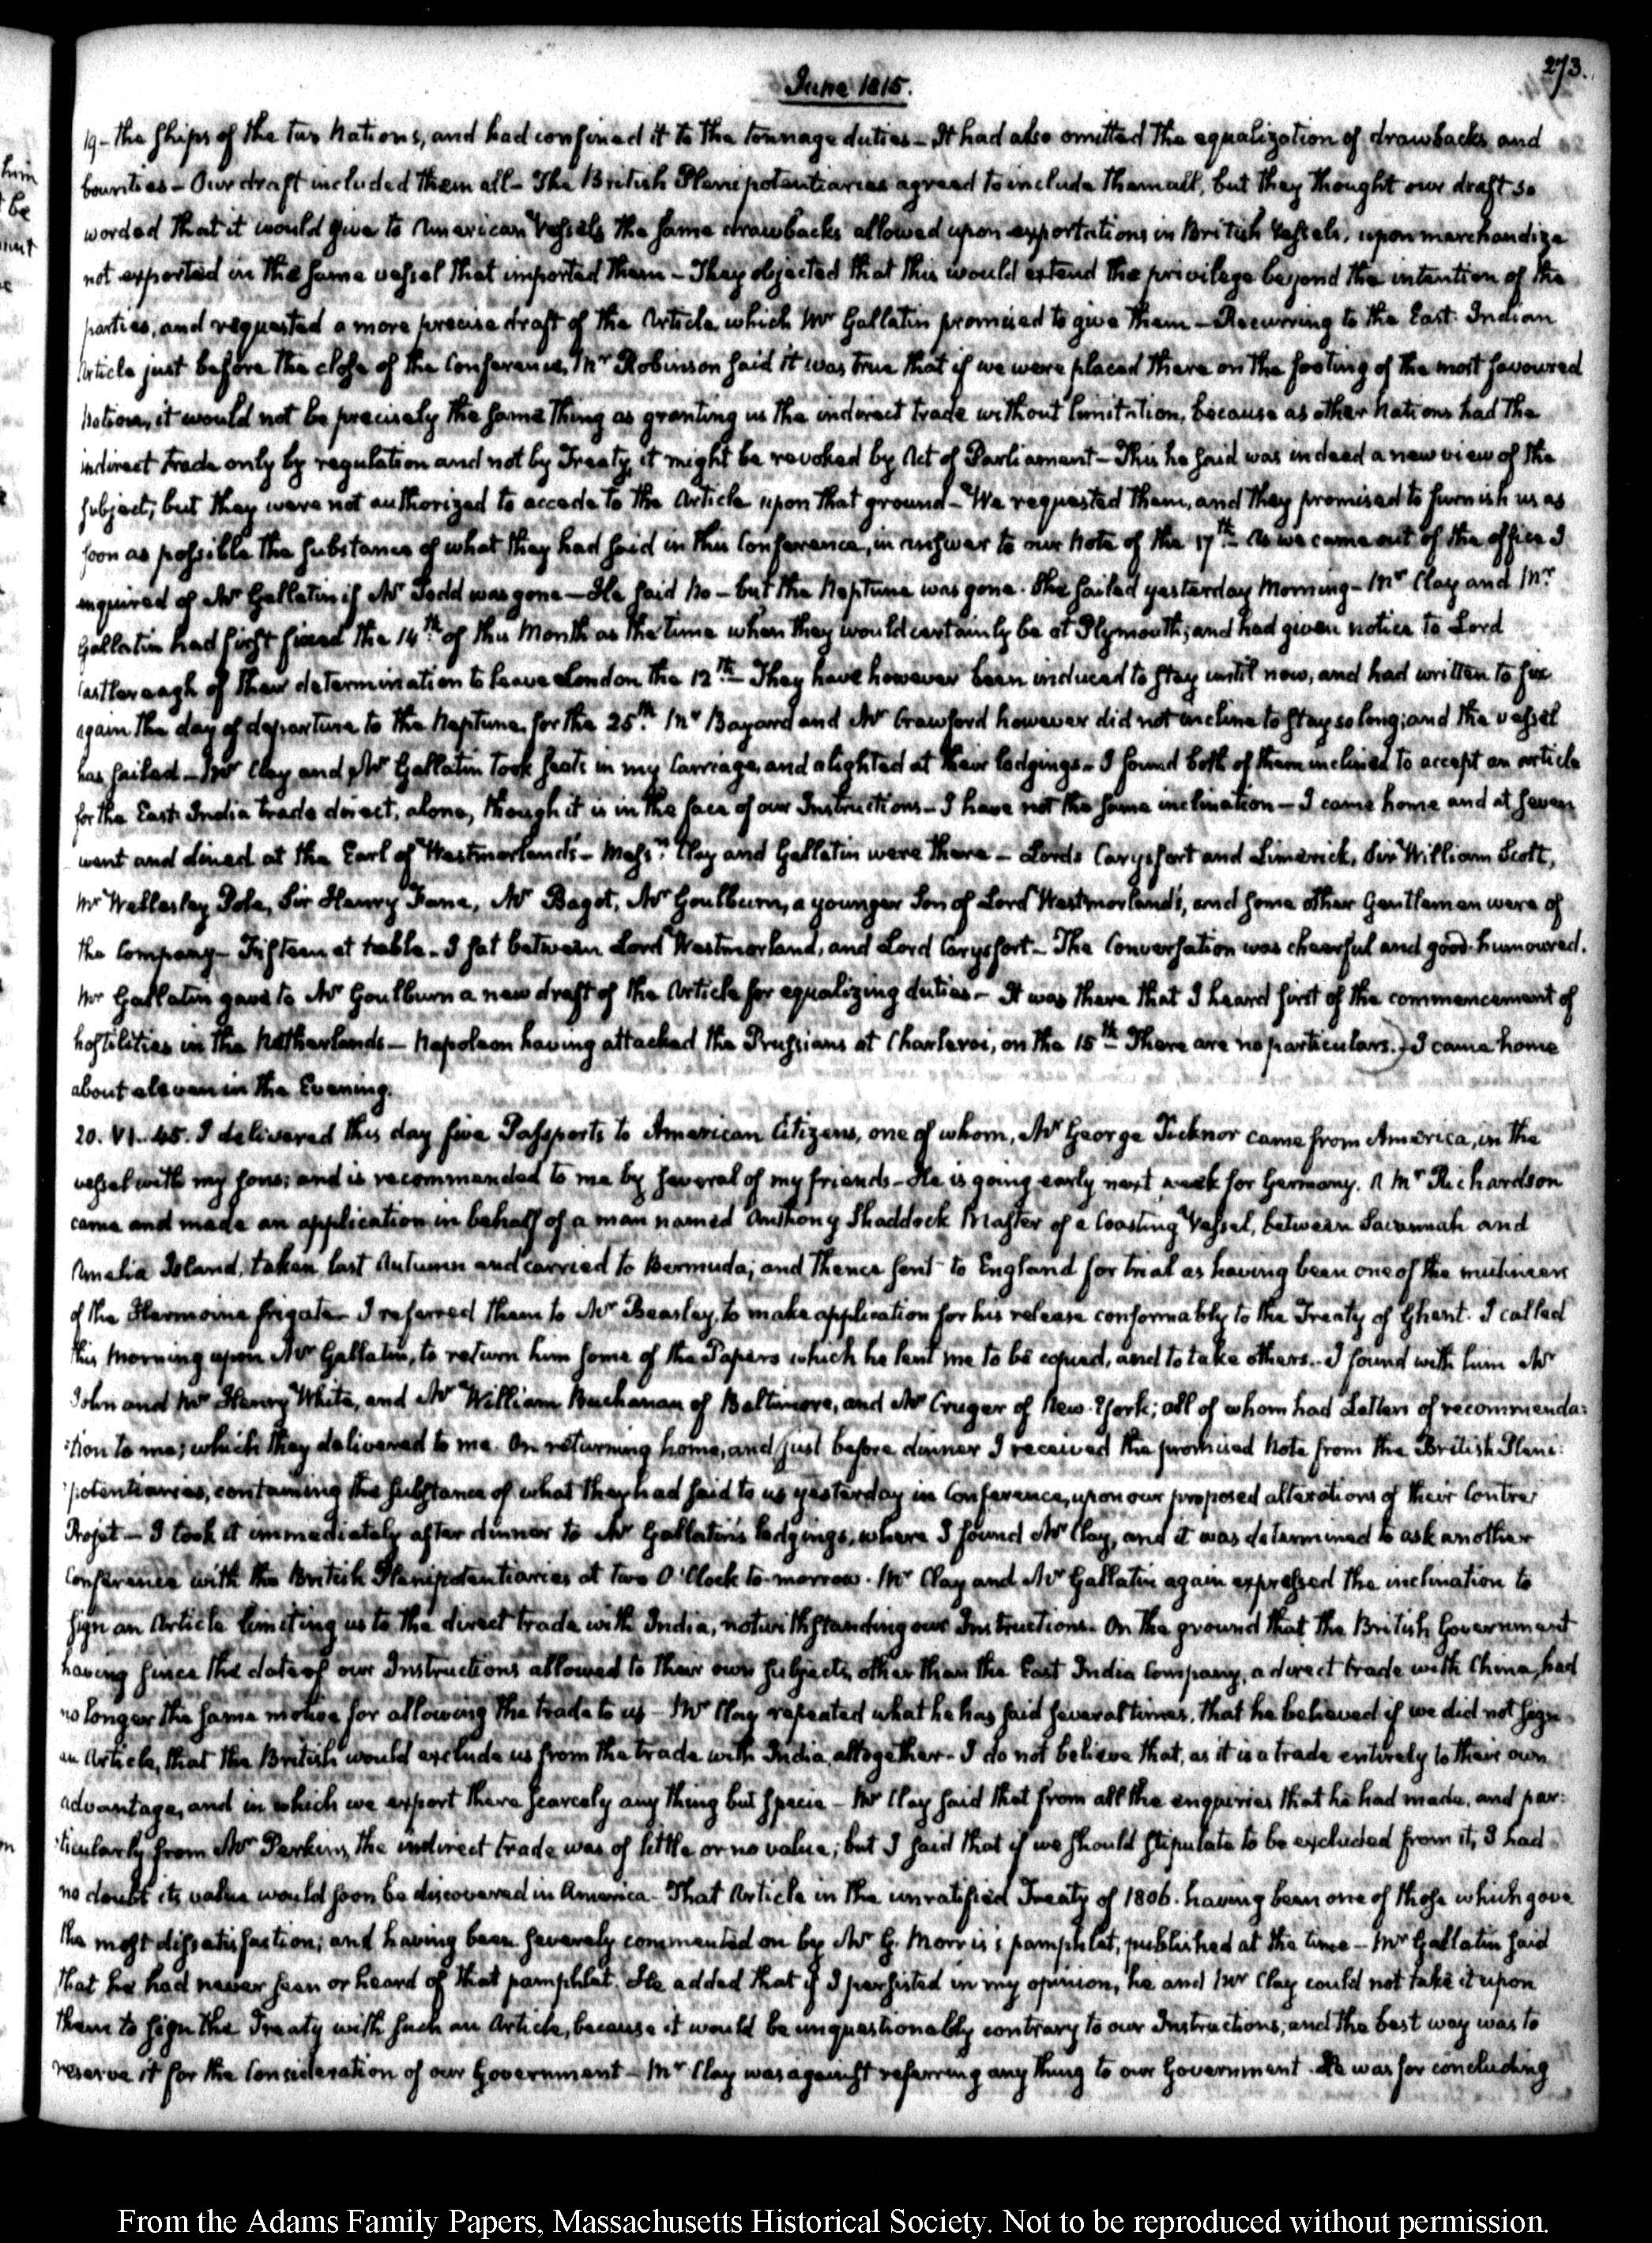 273.
June 1815.
19- the Ships of the two Nations, and had confined it to the tonnage duties - It had also omitted the equalization of drawbacks and
bounties - Our draft included them all - The British Plenipotentiaries agreed to include them all, but they thought our draft so
worded that it would give to American Vessels the same drawbacks allowed upon exportations in British Vessels, upon merchandize
not exported in the same vessel that imported them - They objected that this would extend the privilege beyond the intention of the
parties, and requested a more precise draft of the Article which Mr Gallatin promised to give them - Recurring to the East Indian
Article just before the close of the Conference, Mr Robinson said it was true that if we were placed there on the footing of the most favoured
Nation, it would not be precisely the same thing as granting us the indirect trade without limitation, because as other Nations had the
indirect trade only by regulation and not by Treaty, it might be revoked by Act of Parliament - This he said was indeed a new view of the
subject; but they were not authorized to accede to the Article upon that ground - We requested them, and they promised to furnish us as
soon as possible the substance of what they had said in this Conference, in answer to our Note of the 17th. As we came out of the office I
enquired of Mr Gallatin if Mr Todd was gone - He said No - but the Neptune was gone. She sailed yesterday Morning - Mr Clay and Mr
Gallatin had first fixed the 14th of this Month as the time when they would certainly be at Plymouth; and had given notice to Lord
Castlereagh of their determination to leave London the 12th - They have however been induced to stay until now, and had written to fix
again the day of departure to the Neptune, for the 25th. Mr Bayard and Mr Crawford however did not incline to stay so long; and the vessel
has sailed - Mr Clay and Mr Gallatin took seats in my Carriage, and alighted at their lodgings - I found both of them inclined to accept an article
for the East India trade direct, alone, though it is in the face of our Instructions - I have not the same inclination - I came home and at seven
went and dined at the Earl of Westmorland's - Messrs Clay and Gallatin were there - Lords Carysfort and Limerick, Sir William Scott,
Mr Wellesley Pole, Sir Henry Fane, Mr Bagot, Mr Goulburn, a younger Son of Lord Westmorland's, and some other Gentlemen were of
the Company - Fifteen at table - I sat between Lord Westmorland, and Lord Carysfort - The Conversation was cheerful and good-humoured.
Mr Gallatin gave to Mr Goulburn a new draft of the Article for equalizing duties - It was there that I heard first of the commencement of
hostilities in the Netherlands - Napoleon having attacked the Prussians at Charleroi, on the 15th. There are no particulars.) I came home
about eleven in the Evening.
20. VI..45. I delivered this day five Passports to American Citizens, one of whom, Mr George Ticknor came from America, in the
vessel with my sons; and is recommended to me by several of my friends - He is going early next week for Germany. A Mr Richardson
came and made an application in behalf of a man named Anthony Shaddock Master of a Coasting Vessel, between Savannah and
Amelia Island, taken last Autumn and carried to Bermuda; and thence sent to England for trial as having been one of the mutineers
of the Hermoine frigate - I referred them to Mr Beasley, to make application for his release conformably to the Treaty of Ghent. I called
this Morning upon Mr Gallatin, to return him some of the Papers which he lent me to be copied, and to take others. I found with him Mr
John and Mr Henry White, and Mr William Buchanan of Baltimore, and Mr Cruger of New-York; all of whom had Letters of recommenda:
:tion to me; which they delivered to me. On returning home, and just before dinner I received the promised Note from the British Pleni:
:potentiaries, containing the substance of what they had said to us yesterday in Conference, upon our proposed alterations of their Contre
Projet - I took it immediately after dinner to Mr Gallatin's lodgings, where I found Mr Clay, and it was determined to ask another
Conference with the British Plenipotentiaries at two O'Clock to-morrow. Mr Clay and Mr Gallatin again expressed the inclination to
sign an Article limiting us to the direct trade with India, notwithstanding our Instructions. On the ground that the British Government
having since the date of our Instructions allowed to their own subjects, other than the East India Company, a direct trade with China, had
no longer the same motive for allowing the trade to us - Mr Clay repeated what he has said several times, that he believed if we did not sign
an Article, that the British would exclude us from the trade with India altogether - I do not believe that, as it is a trade entirely to their own
advantage, and in which we export there scarcely any thing but specie - Mr Clay said that from all the enquiries that he had made, and par:
:ticularly from Mr Perkins, the indirect trade was of little or no value; but I said that if we should stipulate to be excluded from it, I had
no doubt its value would soon be discovered in America - That Article in the unratified Treaty of 1806. having been one of those which gave
the most dissatisfaction; and having been severely commented on by Mr G. Morris's pamphlet, published at the time - Mr Gallatin said
that he had never seen or heard of that pamphlet. He added that if I persisted in my opinion, he and Mr Clay could not take it upon
them to sign the Treaty with such an Article, because it would be unquestionably contrary to our Instructions, and the best way was to
reserve it for the Consideration of our Government - Mr Clay was against referring any thing to our Government. He was for concluding
From the Adams Family Papers, Massachusetts Historical Society. Not to be reproduced without permission.